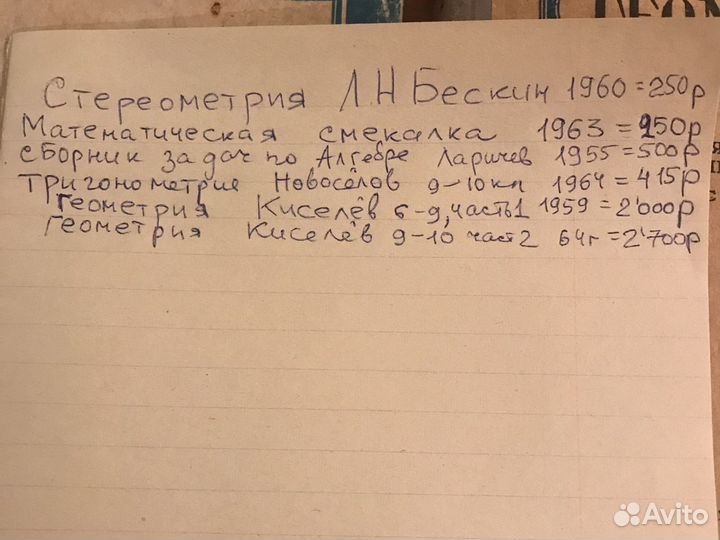 Стереометрия Л Н Бескин 1960 = 250р
Математическая смекалка 1963 = 250р
сборник задач по Алгебре Ларичев 1955 = 500р
Тригонометрия Новосёлов 9-10кл 1964 = 415р
Геометрия Киселёв 6-9, часть1 1959 = 2'000р
Геометрия Киселёв 9-10 част2 64г = 2'700р
Avito